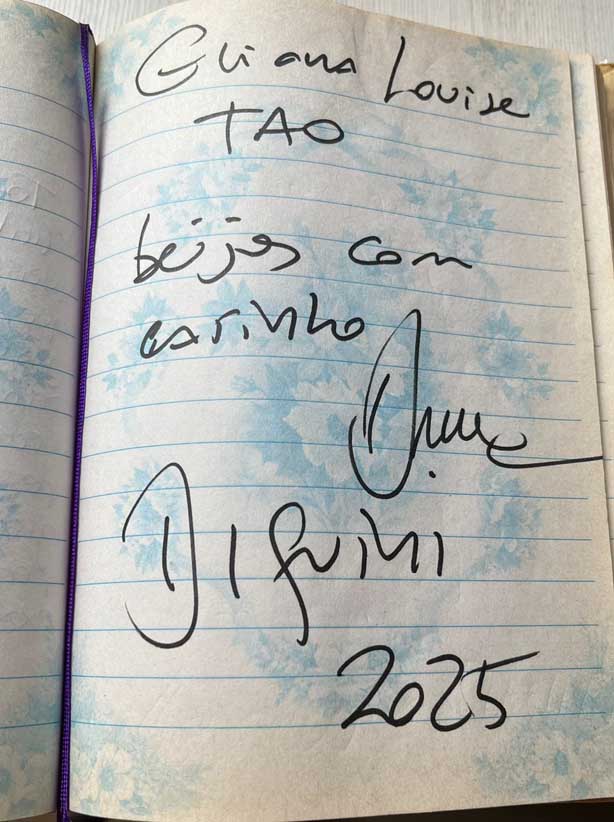 Eliana Louise
TAO
beijos com
carinho
Diguini
2025